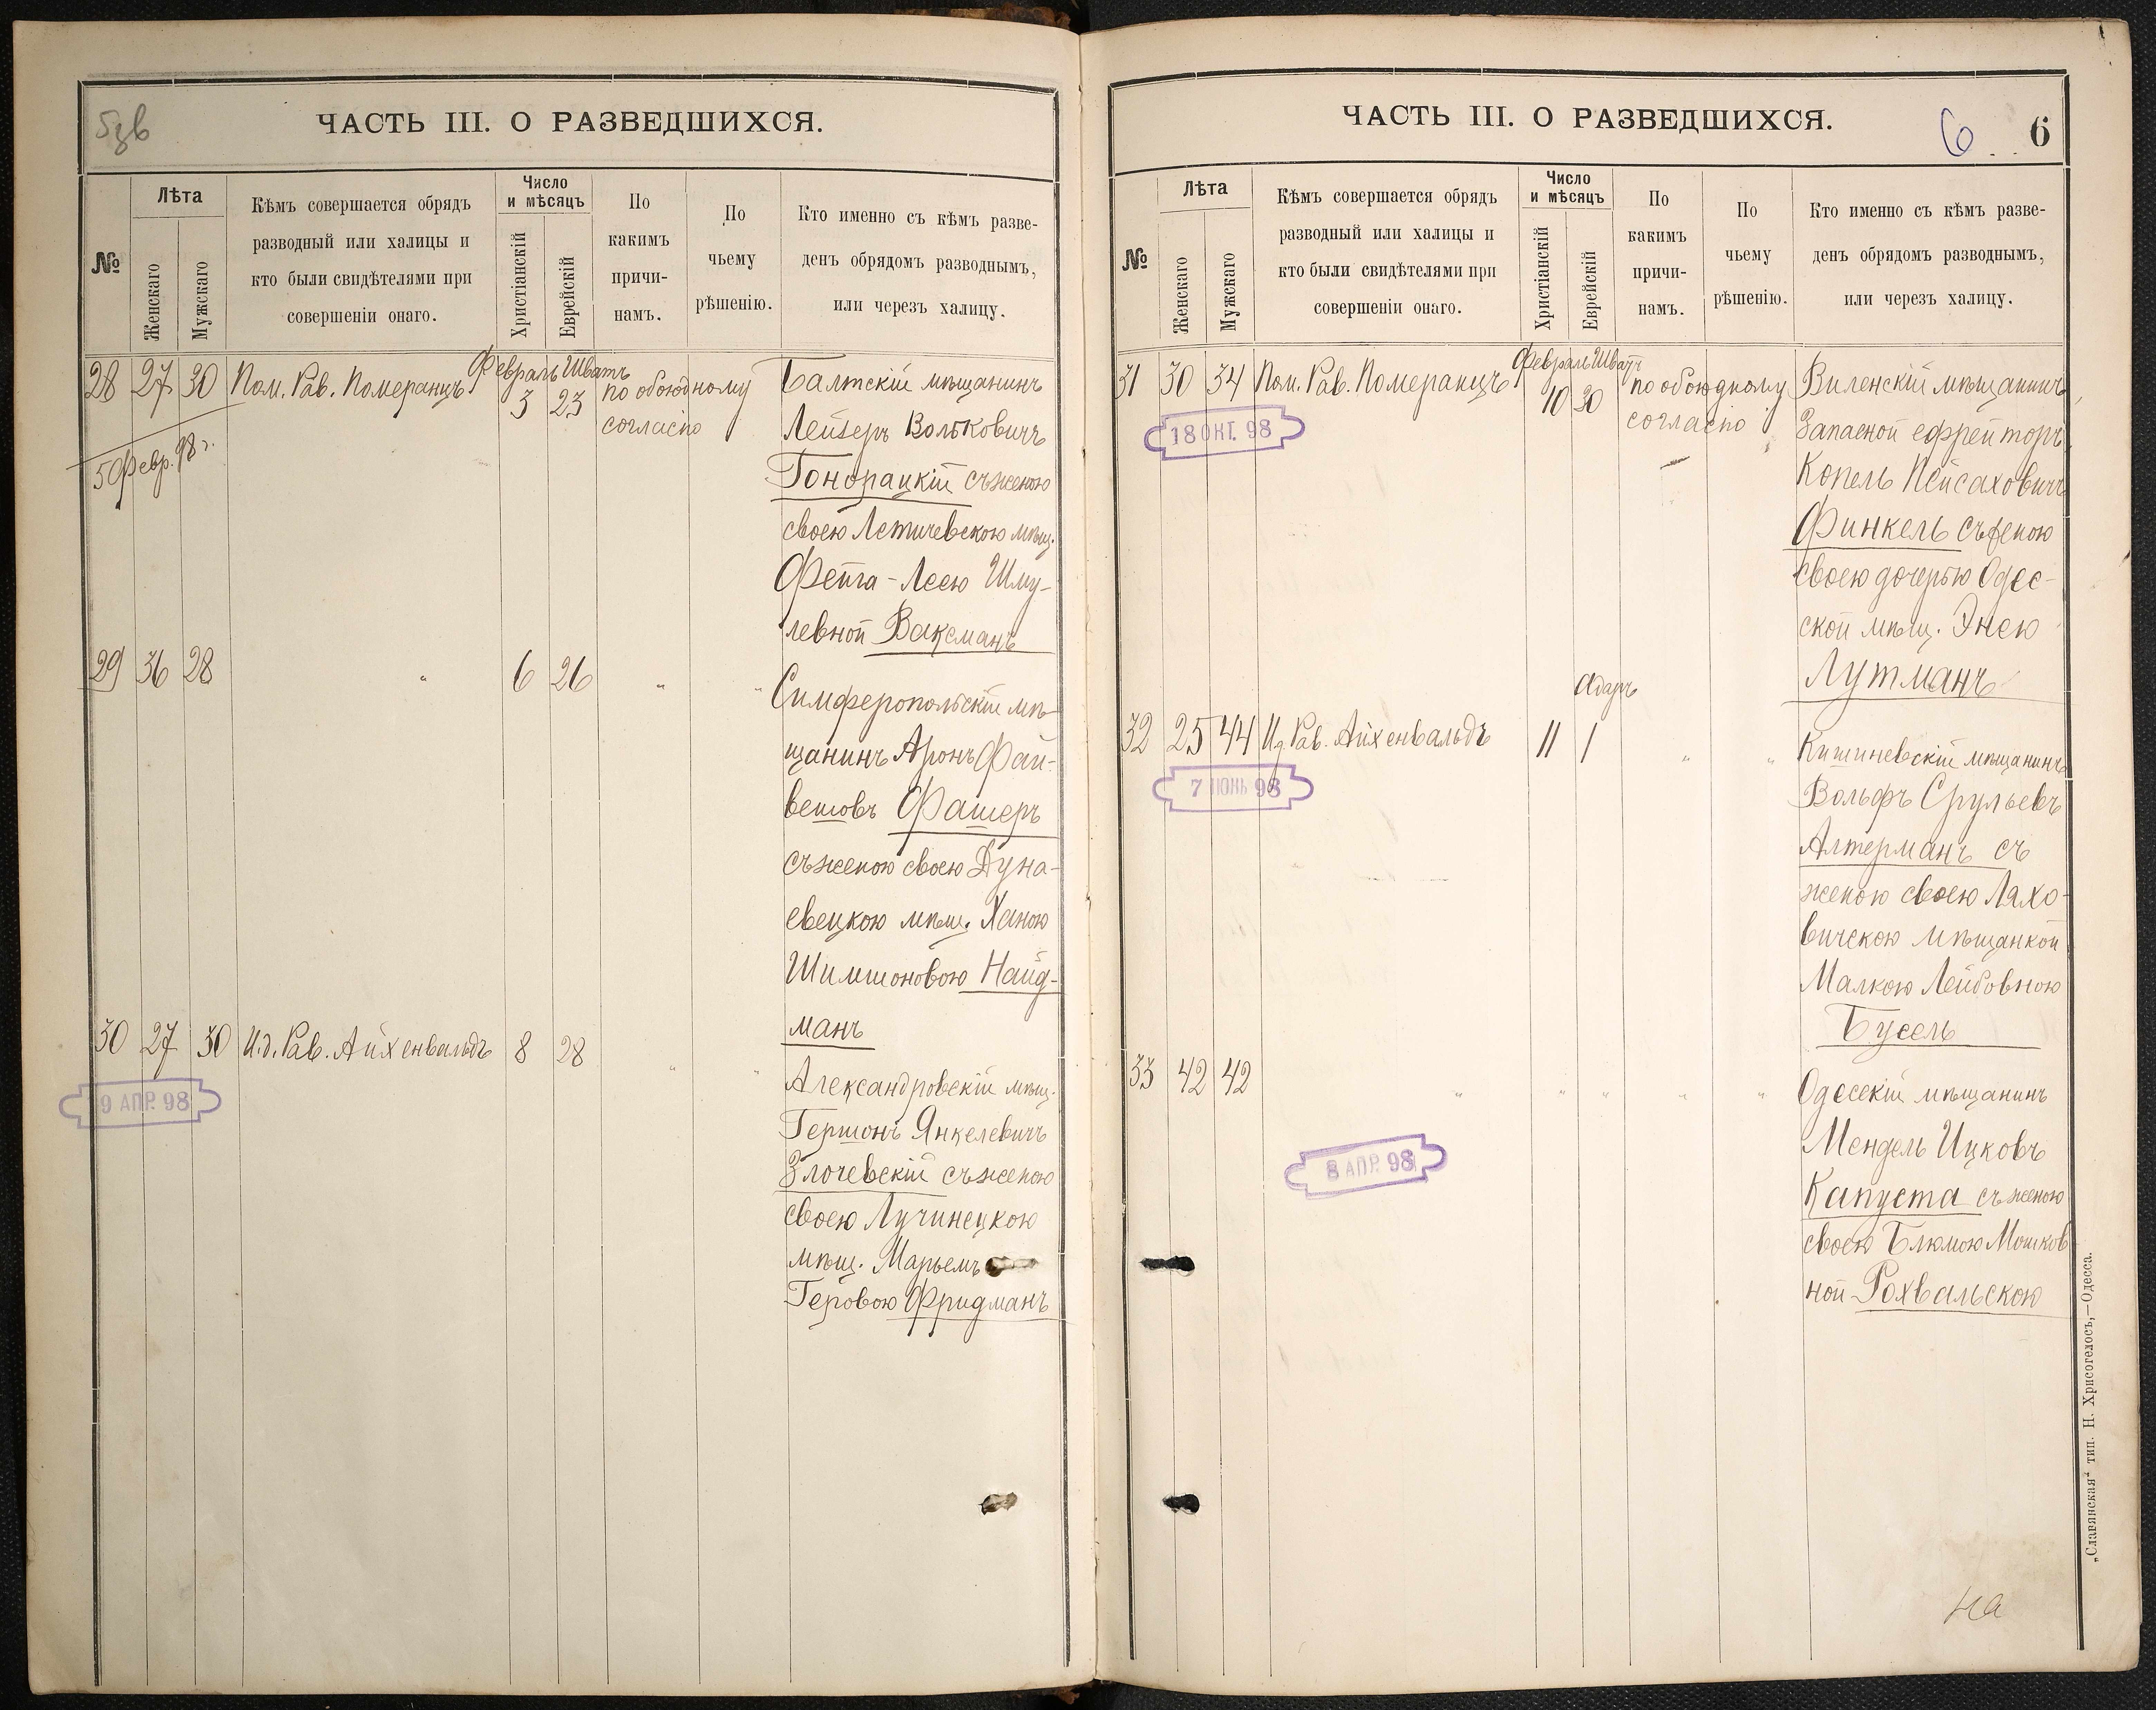 5зв
ЧАСТЬ III. О РАЗВЕДШИХСЯ.
№
Лѣта
Женскаго
Мужскаго
Кѣмъ совершается обрядъ
разводный или халицы и
кто были свидѣтелями при
совершеніи онаго.
Число
и мѣсяцъ
Христіанскій
Еврейскій
По
какимъ
причи-
намъ.
По
чьему
рѣшенію.
Кто именно съ кѣмъ разве-
денъ обрядомъ разводнымъ,
или черезъ халицу.
Февраль Шватъ
28 27 30 Пом. Рав. Померанцъ 3 23 по обоюдному
согласію
5 Февр. 98 г.
Балтскій мѣщанинъ
Лейзеръ Вольковичъ
Гонорацкій съ женою
своею Летичевскою мѣщ.
Фейга-Леею Шму-
левной Ваксманъ
29 36 28 " 6 26 " "
Симферопольскій мѣ-
щанинъ Аронъ Фай-
вешовъ Фашеръ
съ женою своею Дуна-
евецкою мѣщ. Ханою
Шимшоновою Найд-
манъ
30 27 30 И.д. Рав. Айхенвальдъ 8 28 " "
9 АПР. 98
Александровскій мѣщ.
Гершонъ Янкелевичъ
Злочевскій съ женою
своею Лучинецкою
мѣщ. Марьемъ
Геровою Фридманъ
ЧАСТЬ III. О РАЗВЕДШИХСЯ.
6 6
№
Лѣта
Женскаго
Мужскаго
Кѣмъ совершается обрядъ
разводный или халицы и
кто были свидѣтелями при
совершеніи онаго.
Число
и мѣсяцъ
Христіанскій
Еврейскій
По
какимъ
причи-
намъ.
По
чьему
рѣшенію.
Кто именно съ кѣмъ разве-
денъ обрядомъ разводнымъ,
или черезъ халицу.
Февраль Шватъ
31 30 34 Пом. Рав. Померанцъ 10 30 по обоюдному
согласію
18 ОКТ. 98
Виленскій мѣщанинъ
Запасной ефрейторъ
Копель Пейсаховичъ
Финкель съ женою
своею дочерью Одес-
ской мѣщ. Энею
Лутманъ
Адаръ
32 25 44 И.д. Рав. Айхенвальдъ 11 1 " "
7 ІЮНЬ 98
Кишиневскій мѣщанинъ
Вольфъ Срульевъ
Алтерманъ съ
женою своею Ляхо-
вичскою мѣщанкой
Малкою Лейбовною
Бусель
33 42 42 " " " " "
8 АПР. 98
Одесскій мѣщанинъ
Мендель Ицковъ
Капуста съ женою
своею Блюмою Мошков
ной Рохвальскою
на
„Славянская“ тип. Н. Хрисогелосъ,—Одесса.